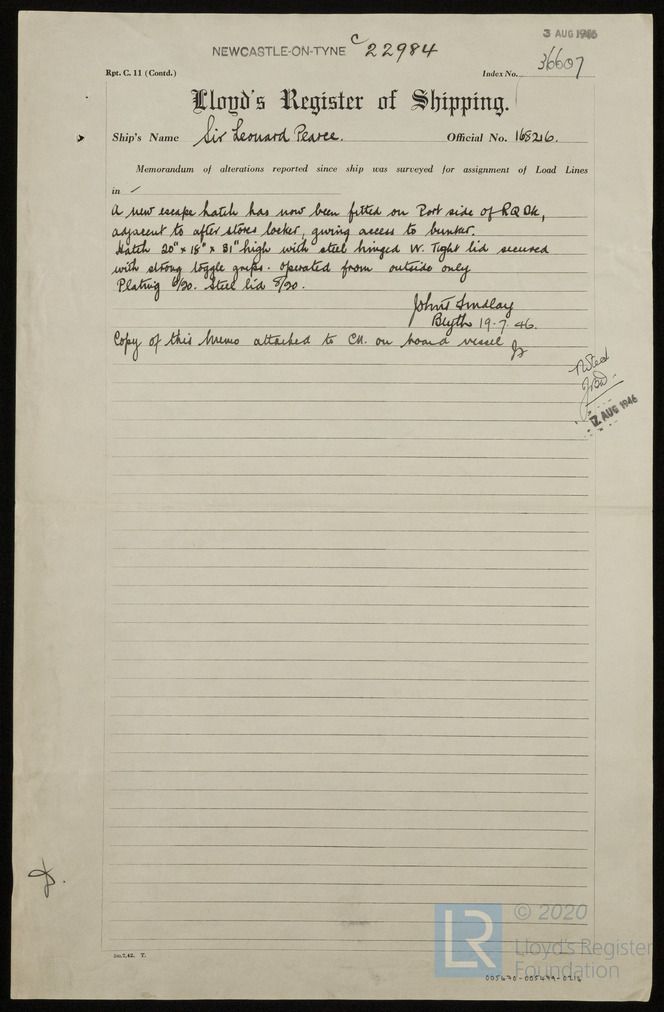 3 AUG 1946
NEWCASTLE-ON-TYNE C 22984
36607
Rpt. C. 11 (Contd.)
Index No.
Lloyd's Register of Shipping.
Ship's Name Sir Leonard Pearce.
Official No. 168216.
Memorandum of alterations reported since ship was surveyed for assignment of Load Lines
in
A new escape hatch has now been fitted on Port side of R Q Dk,
adjacent to after stores locker, giving access to bunker.
Hatch 20" x 18" x 31" high with steel hinged W. Tight lid secured
with strong toggle grips. operated from outside only
Plating 6/20. Steel lid 8/20.
John Findlay
Blyth 19.7.46.
Copy of this Memo attached to Ctl. on board vessel
Noted
12 AUG 1946
5m,7,42. T.
LR
© 2020
Lloyd's Register
Foundation
005470-005499-0216